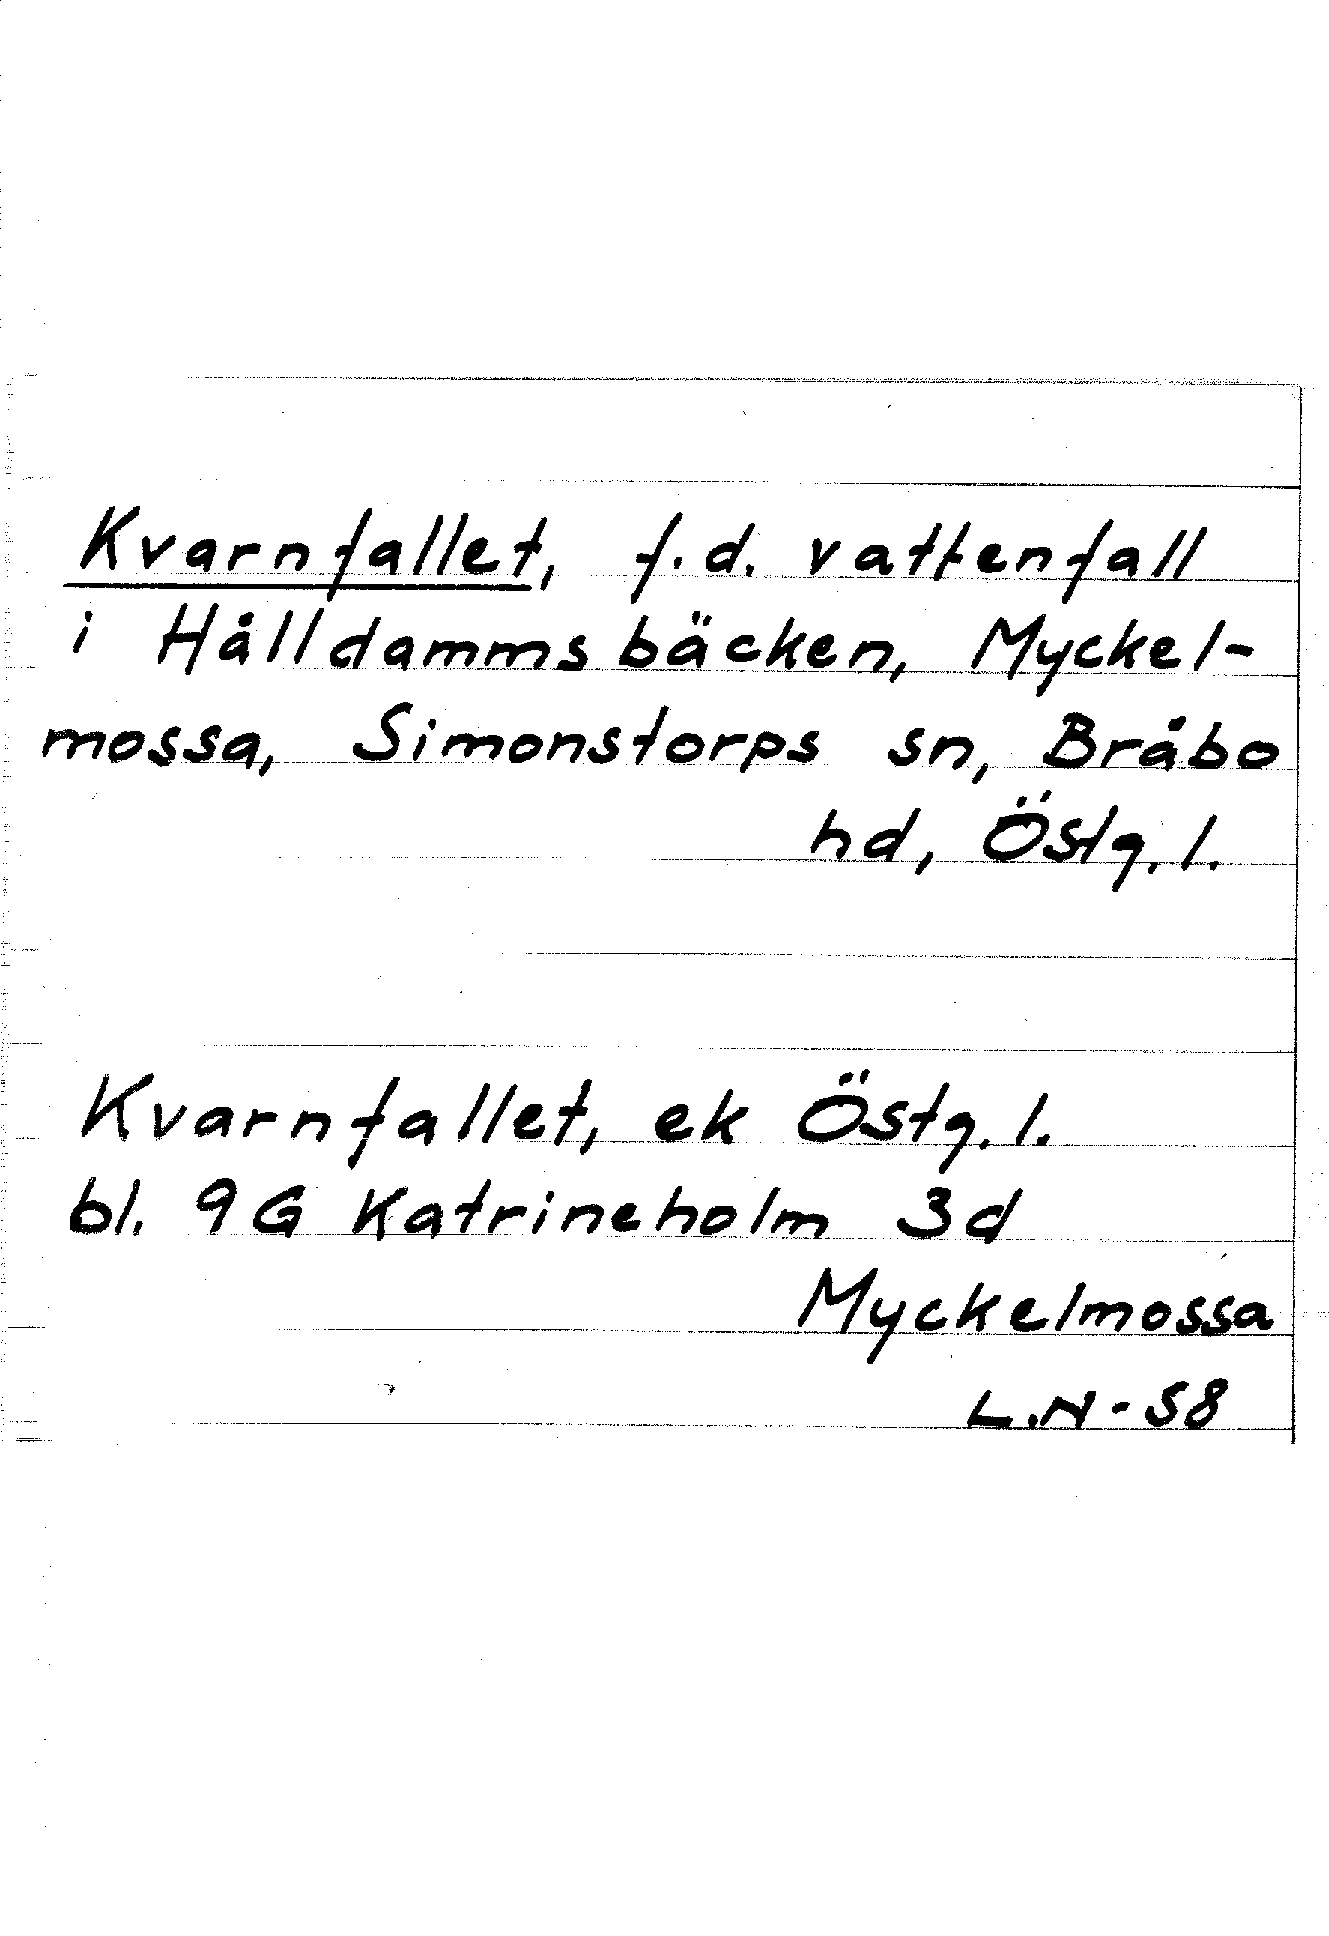 Kvarnfallet, f.d. vattenfall
i Hålldammsbäcken, Myckel-
mossa, Simonstorps sn, Bråbo
hd, Östg. l.
Kvarnfallet, ek Östg. l.
bl. 9G Katrineholm 3d
Myckelmossa
L.N-58